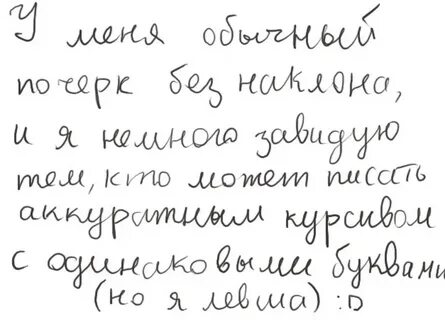 У меня обычный
почерк без наклона,
и я немного завидую
тем, кто может писать
аккуратным курсивом
с одинаковыми буквами
(но я левша) :D